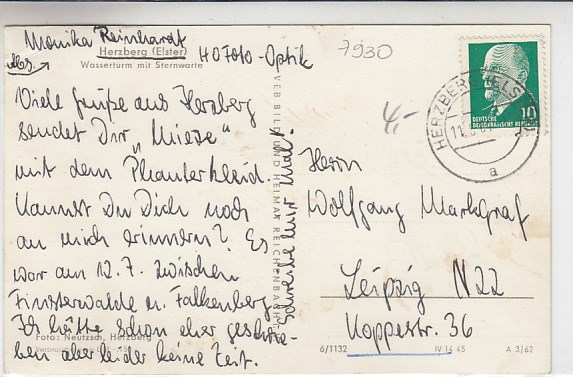 Monika Reinhardt
Herzberg (Elster)
Abs.
HO Foto-Optik
7930
Wasserturm mit Sternwarte
Viele Grüße aus Herzberg
sendet Dir „Mieze"
mit dem Phanterkleid.
Kannst Du Dich noch
an mich erinnern? Es
war am 12.7. zwischen
Finsterwalde u. Falkenberg
Ich hätte schon eher geschrie-
ben aber leider keine Zeit.
Schreibe mir mal!
Foto: Neutzsch, Herzberg
VEB BILD UND HEIMAT REICHENBACH
4,-
10
DEUTSCHE
DEMOKRATISCHE REPUBLIK
HERZBERG (ELSTER)
a
Herrn
Wolfgang Markgraf
Leipzig N22
Koppestr. 36
6/1132
IV-14-45
A 3/62